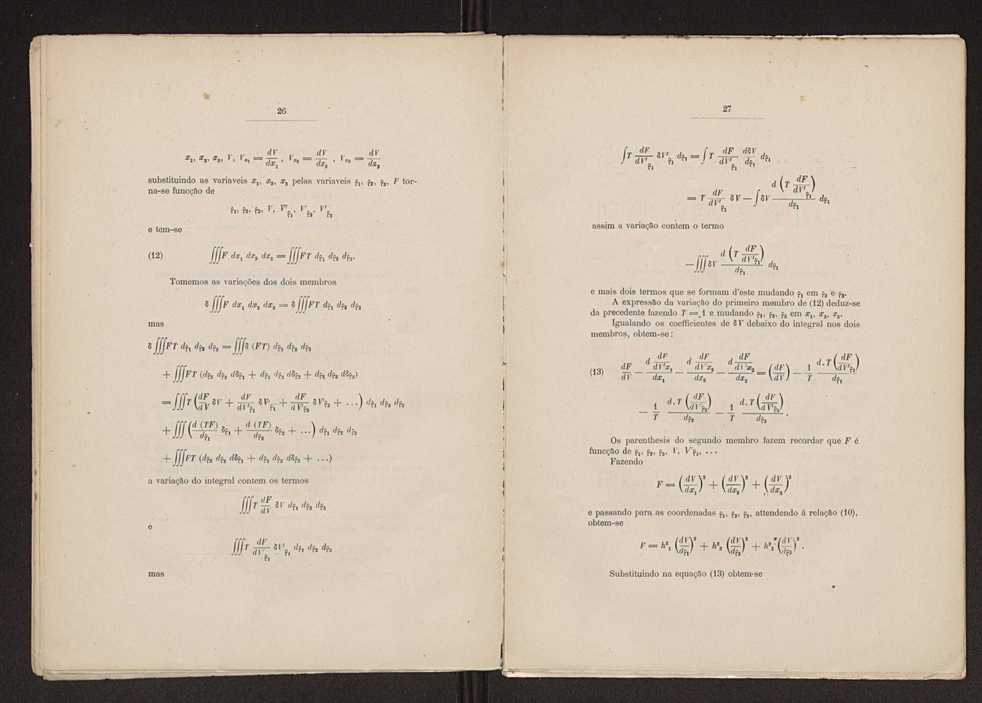 26
x₁, x₂, x₃, V, V_{x₁} = dV/dx₁, V_{x₂} = dV/dx₂, V_{x₃} = dV/dx₃
substituindo as variaveis x₁, x₂, x₃ pelas variaveis ρ₁, ρ₂, ρ₃, F tor-
na-se funcção de
ρ₁, ρ₂, ρ₃, V, V'_{ρ₁}, V'_{ρ₂}, V'_{ρ₃}
e tem-se
(12) ∭F dx₁ dx₂ dx₃ = ∭FT dρ₁ dρ₂ dρ₃.
Tomemos as variações dos dois membros
δ∭F dx₁ dx₂ dx₃ = δ∭FT dρ₁ dρ₂ dρ₃
mas
δ∭FT dρ₁ dρ₂ dρ₃ = ∭δ (FT) dρ₁ dρ₂ dρ₃
+ ∭FT (dρ₂ dρ₃ dδρ₁ + dρ₁ dρ₃ dδρ₂ + dρ₁ dρ₂ dδρ₃)
= ∭T (dF/dV δV + dF/dV'_{ρ₁} δV'_{ρ₁} + dF/dV'_{ρ₂} δV'_{ρ₂} + ...) dρ₁ dρ₂ dρ₃
+ ∭(d (TF)/dρ₁ δρ₁ + d (TF)/dρ₂ δρ₂ + ...) dρ₁ dρ₂ dρ₃
+ ∭FT (dρ₂ dρ₃ dδρ₁ + dρ₁ dρ₃ dδρ₂ + ...)
a variação do integral contem os termos
∭T dF/dV δV dρ₁ dρ₂ dρ₃
e
∭T dF/dV'_{ρ₁} δV'_{ρ₁} dρ₁ dρ₂ dρ₃
mas
27
∫T dF/dV'_{ρ₁} δV'_{ρ₁} dρ₁ = ∫T dF/dV'_{ρ₁} dδV/dρ₁ dρ₁
= T dF/dV'_{ρ₁} δV − ∫δV d (T dF/dV'_{ρ₁})/dρ₁ dρ₁
assim a variação contem o termo
−∭δV d (T dF/dV'_{ρ₁})/dρ₁ dρ₁
e mais dois termos que se formam d'este mudando ρ₁ em ρ₂ e ρ₃.
A expressão da variação do primeiro membro de (12) deduz-se
da precedente fazendo T = 1 e mudando ρ₁, ρ₂, ρ₃ em x₁, x₂, x₃.
Igualando os coefficientes de δV debaixo do integral nos dois
membros, obtem-se:
(13) dF/dV − d dF/dV'x₁ /dx₁ − d dF/dV'x₂ /dx₂ − d dF/dV'x₃ /dx₃ = (dF/dV) − 1/T d.T (dF/dV'_{ρ₁})/dρ₁
− 1/T d.T (dF/dV'_{ρ₂})/dρ₂ − 1/T d.T (dF/dV'_{ρ₃})/dρ₃.
Os parenthesis do segundo membro fazem recordar que F é
funcção de ρ₁, ρ₂, ρ₃, V, V'_{ρ₁}, ...
Fazendo
F = (dV/dx₁)² + (dV/dx₂)² + (dV/dx₃)²
e passando para as coordenadas ρ₁, ρ₂, ρ₃, attendendo á relação (10),
obtem-se
F = h²₁ (dV/dρ₁)² + h²₂ (dV/dρ₂)² + h²₃ (dV/dρ₃)².
Substituindo na equação (13) obtem-se